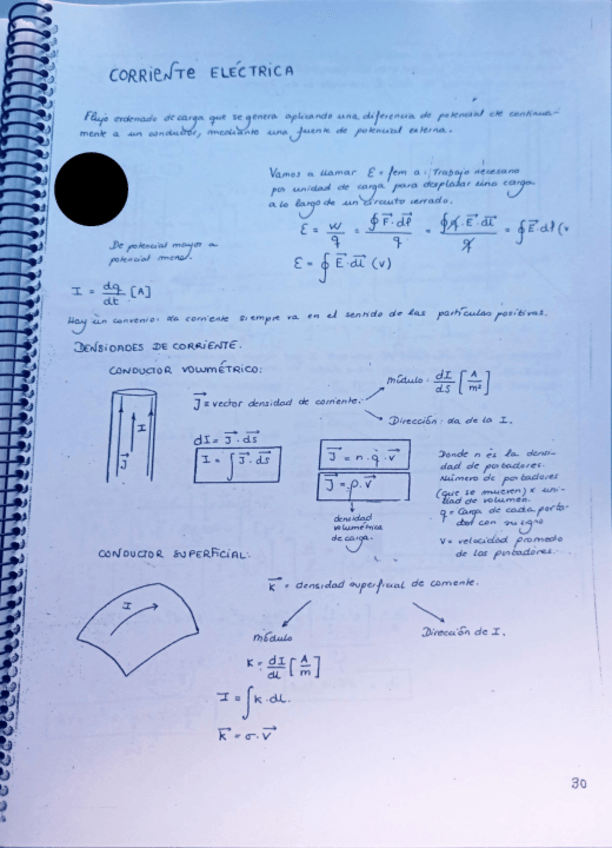 CORRIENTE ELÉCTRICA
Flujo ordenado de carga que se genera aplicando una diferencia de potencial cte continua-
mente a un conductor, mediante una fuente de potencial externa.
Vamos a llamar ε = fem a: Trabajo necesario
por unidad de carga para desplazar una carga
a lo largo de un circuito cerrado.
ε = W/q = ∮F⃗·dl⃗/q = ∮q·E⃗·dl⃗/q = ∮E⃗·dl⃗ (v
De potencial mayor a
potencial menor.
ε = ∮E⃗·dl⃗ (v)
I = dq/dt [A]
Hay un convenio: La corriente siempre va en el sentido de las partículas positivas.
DENSIDADES DE CORRIENTE.
CONDUCTOR VOLUMÉTRICO:
módulo: dI/dS [A/m²]
J⃗ = vector densidad de corriente.
Dirección: La de la I.
I
J⃗
dI = J⃗·dS⃗
I = ∫J⃗·dS⃗
J⃗ = n·q·v⃗
J⃗ = ρ·v⃗
densidad
volumétrica
de carga.
Donde n es la densi-
dad de portadores.
Número de portadores
(que se mueven) x uni-
dad de volumen.
q = Carga de cada porta-
dor con su signo
v = velocidad promedio
de los portadores.
CONDUCTOR SUPERFICIAL:
K⃗ = densidad superficial de corriente.
I
módulo
Dirección de I.
K = dI/dL [A/m]
I = ∫K·dL.
K⃗ = σ·v⃗
30